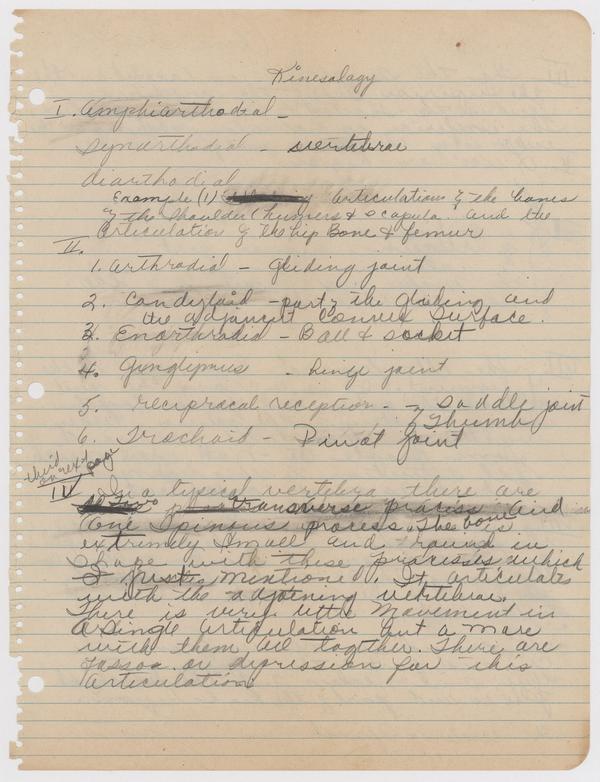 Kinesalogy
I. Amphiarthodial -
Synarthodial - vertebrae
diarthodial
Example (1) articulations of the bones
of the shoulder (humers & scapula. and the
Articulation of the hip Bone & femur
II.
1. Arthradial - Gliding joint
2. Condyloid - part of the gliding and
the adjancent convex surface.
3. Enarthradial - Ball & socket
4. Gingliymus - hinge joint
5. reciprocal reception - Saddle joint
of Thumb
6. Trochoid - Pivot joint
third
on next page
IV In a typical vertebra there are
two transverse process and
one spinous process. The bone is
extremly small and round in
shape with these processes which
I just mentioned. It articulates
with the adjoining vertebrae.
There is very little movement in
a single articulation but a more
with them all together. There are
fassoa or depression for this
articulation